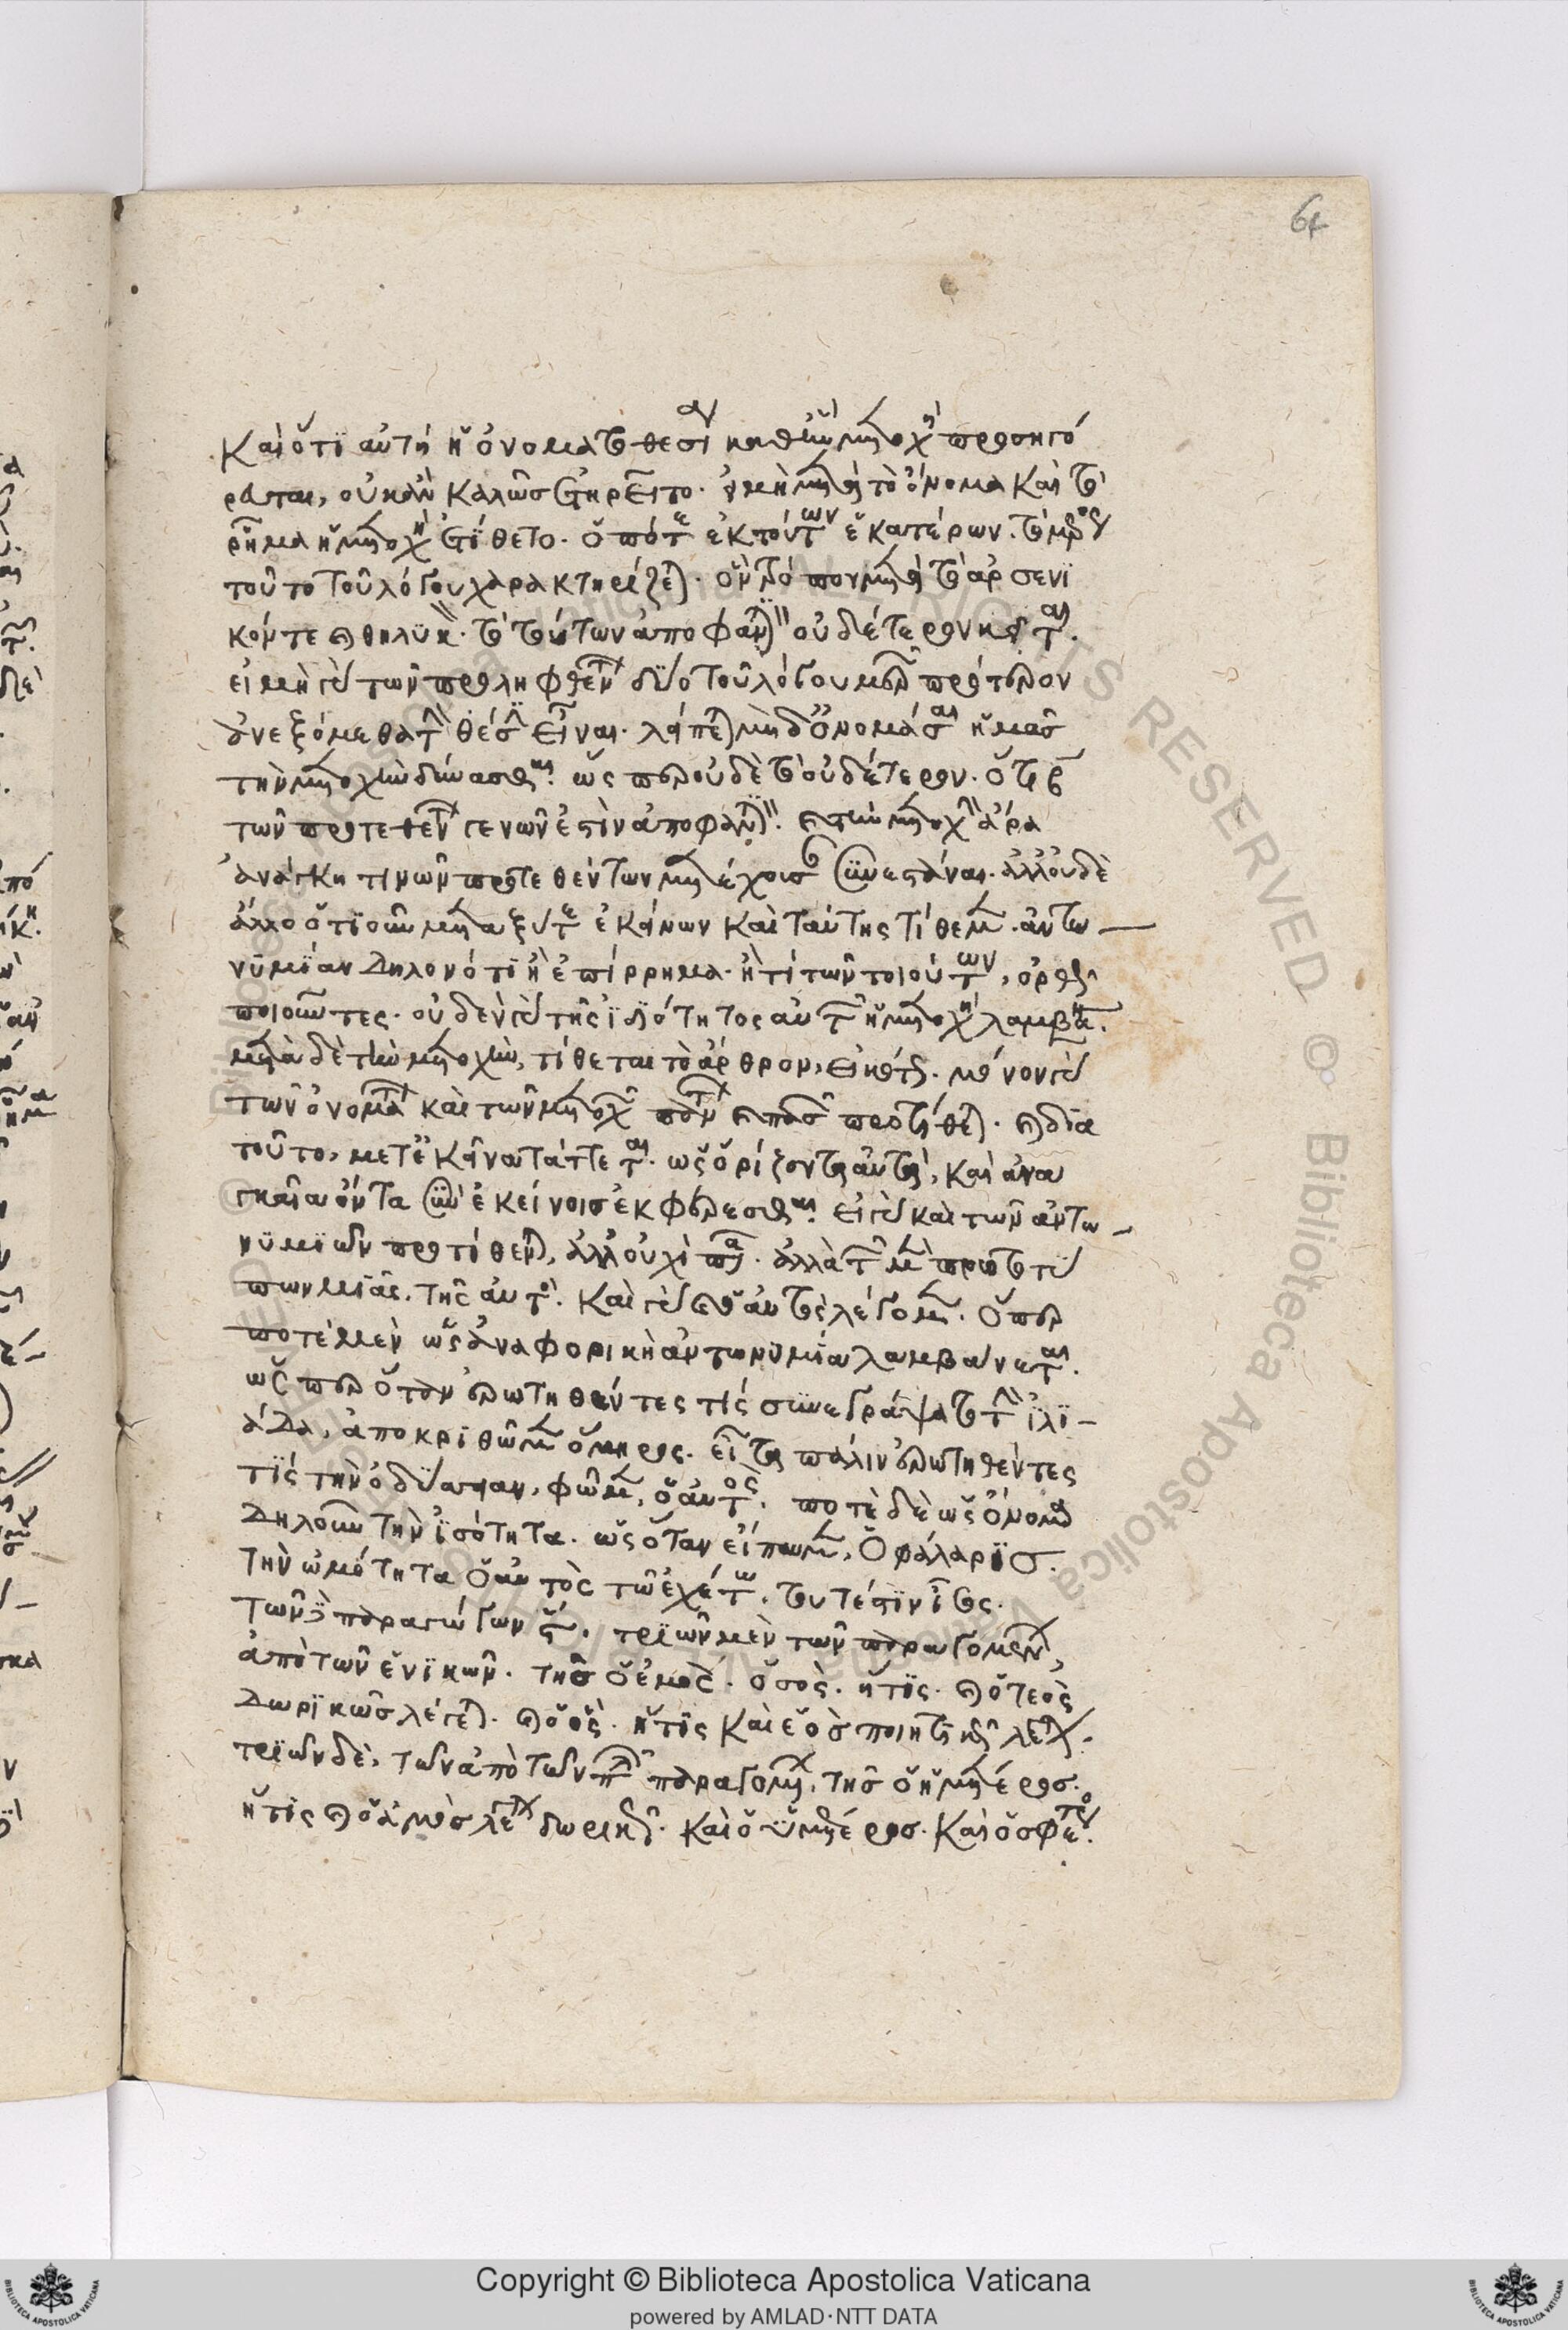 64
Καὶ ὅτι αὐτὴ ἡ ὀνοματοθεσία καθ' ἣν μετοχὴ προσηγό
ρευται, οὐκ ἂν καλῶς ἐτηρεῖτο. εἰ μὴ μετὰ τὸ ὄνομα καὶ τὸ
ῥῆμα ἡ μετοχὴ ἐτίθετο. ὁπότε ἐκ τούτων ἑκατέρων τὸ μέρος
τοῦτο τοῦ λόγου χαρακτηρίζεται.
κόν τε καὶ θηλυκὸν τὸ τούτων ἀποφατικὸν οὐδέτερον κεῖται.
εἰ μὴ γὰρ τῶν προληφθέντων δύο τοῦ λόγου μερῶν πρότερον
τὴν μετοχὴν δύνασθαι. ὥσπερ οὐδὲ τὸ οὐδέτερον. ὅτι
τῶν προτεθέντων γενῶν ἐστὶν ἀποφατικόν. καὶ τὴν μετοχὴν ἄρα
ἀνάγκη τινῶν προτεθέντων μετέχουσαν συνεστάναι. ἀλλ' οὐδὲ
ἄλλο ὁτιοῦν μεταξύ τε ἐκείνων καὶ ταύτης τίθεμεν. ἀντω
νυμίαν δηλονότι ἢ ἐπίρρημα. ἤ τι τῶν τοιούτων, ὀρθῶς
ποιοῦντες. οὐδὲν γὰρ τῆς ἰδιότητος αὐτῶν ἡ μετοχὴ λαμβάνει.
μετὰ δὲ τὴν μετοχὴν, τίθεται τὸ ἄρθρον, εἰκότως. μόνον γὰρ
τῶν ὀνομάτων καὶ τῶν μετοχῶν πάντων καὶ πασῶν προτίθεται. καὶ διὰ
τοῦτο, μετ' ἐκεῖνα τάττεται. ὡς ὁρίζον τε αὐτὰ, καὶ ἀνα
γκαῖα ὄντα σὺν ἐκείνοις ἐκφέρεσθαι. εἰ γὰρ καὶ τῶν ἀντω
νυμιῶν προτίθεται, ἀλλ' οὐχὶ πασῶν. ἀλλὰ τῶν μὲν πρωτοτύ
πων μιᾶς. τῆς αὐτός. καὶ γὰρ καὶ ὁ αὐτὸς λέγομεν. ὅπερ
ποτὲ μὲν ὡς ἀναφορικὴ ἀντωνυμία λαμβάνεται.
ὥσπερ ὅταν ἐρωτηθέντες τίς συνεγράψατο τὴν ἰλι
άδα, ἀποκριθῶμεν ὅμηρος. εἶτα πάλιν ἐρωτηθέντες
τίς τὴν ὀδύσσειαν, φῶμεν, ὁ αὐτός. ποτὲ δὲ ὡς ὄνομα
δηλοῦν τὴν ἰσότητα. ὡς ὅταν εἴπωμεν, ὁ φάλαρις.
τὴν ὠμότητα ὁ αὐτὸς τῷ ἐχέτῳ. τουτέστιν ἴσος.
τῶν δὲ παραγώγων ϛ. τριῶν μὲν τῶν παραγομένων,
ἀπὸ τῶν ἑνικῶν. τῆς ὁ ἐμὸς. ὁ σὸς. ἥτις καὶ ὁ τεὸς
δωρικῶς λέγεται. καὶ ὁ ὃς. ἥτις καὶ ἑὸς ποιητικῶς λέγεται.
τριῶν δὲ, τῶν ἀπὸ τῶν πληθυντικῶν παραγομένων, τῆς ὁ ἡμέτερος.
ἥτις καὶ ὁ ἀμὸς λέγεται δωρικῶς. καὶ ὁ ὑμέτερος. καὶ ὁ σφέτερος.
Copyright © Biblioteca Apostolica Vaticana
powered by AMLAD·NTT DATA